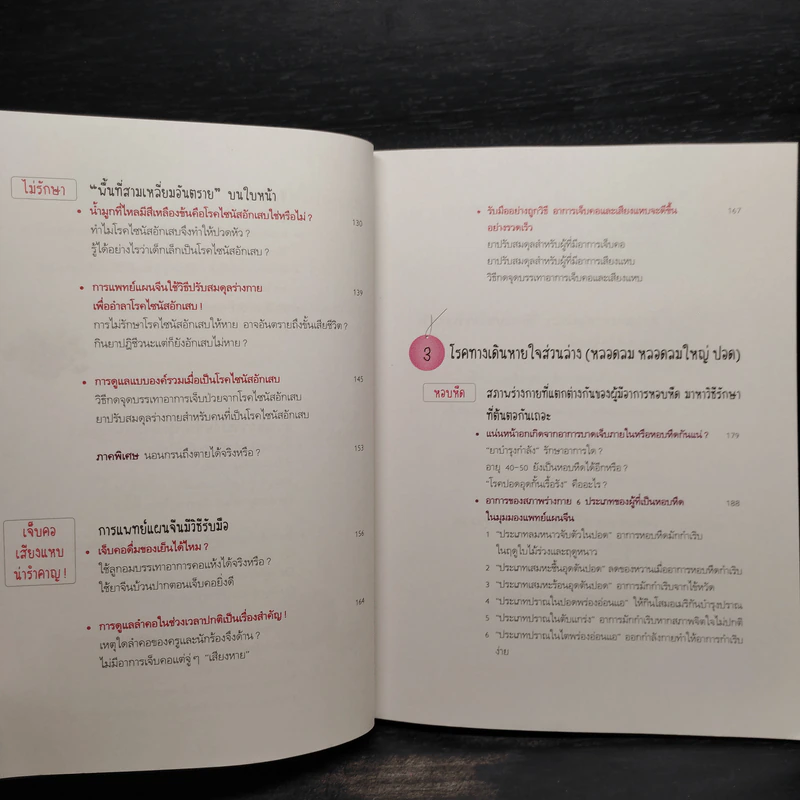 ไม่รักษา
"พื้นที่สามเหลี่ยมอันตราย" บนใบหน้า
• น้ำมูกที่ไหลมีสีเหลืองข้นคือโรคไซนัสอักเสบใช่หรือไม่ ? 130
ทำไมโรคไซนัสอักเสบจึงทำให้ปวดหัว ?
รู้ได้อย่างไรว่าเด็กเล็กเป็นโรคไซนัสอักเสบ ?
• การแพทย์แผนจีนใช้วิธีปรับสมดุลร่างกาย 139
เพื่ออำลาโรคไซนัสอักเสบ !
การไม่รักษาโรคไซนัสอักเสบให้หาย อาจอันตรายถึงขั้นเสียชีวิต ?
กินยาปฏิชีวนะแต่ก็ยังอักเสบไม่หาย ?
• การดูแลแบบองค์รวมเมื่อเป็นโรคไซนัสอักเสบ 145
วิธีกดจุดบรรเทาอาการเจ็บป่วยจากโรคไซนัสอักเสบ
ยาปรับสมดุลร่างกายสำหรับคนที่เป็นโรคไซนัสอักเสบ
ภาคพิเศษ นอนกรนถึงตายได้จริงหรือ ? 153
เจ็บคอ
เสียงแหบ
น่ารำคาญ !
การแพทย์แผนจีนมีวิธีรับมือ 156
• เจ็บคอดื่มของเย็นได้ไหม ?
ใช้ลูกอมบรรเทาอาการคอแห้งได้จริงหรือ ?
ใช้ยาจีนบ้วนปากตอนเจ็บคอยิ่งดี
• การดูแลลำคอในช่วงเวลาปกติเป็นเรื่องสำคัญ ! 164
เหตุใดลำคอของครูและนักร้องจึงด้าน ?
ไม่มีอาการเจ็บคอแต่จู่ๆ "เสียงหาย"
• รับมืออย่างถูกวิธี อาการเจ็บคอและเสียงแหบจะดีขึ้น 167
อย่างรวดเร็ว
ยาปรับสมดุลสำหรับผู้ที่มีอาการเจ็บคอ
ยาปรับสมดุลสำหรับผู้ที่มีอาการเสียงแหบ
วิธีกดจุดบรรเทาอาการเจ็บคอและเสียงแหบ
3 โรคทางเดินหายใจส่วนล่าง (หลอดลม หลอดลมใหญ่ ปอด)
หอบหืด
สภาพร่างกายที่แตกต่างกันของผู้มีอาการหอบหืด มาหาวิธีรักษา
ที่ต้นตอกันเถอะ
• แน่นหน้าอกเกิดจากอาการบาดเจ็บภายในหรือหอบหืดกันแน่ ? 179
"ยาบำรุงกำลัง" รักษาอาการใด ?
อายุ 40-50 ยังเป็นหอบหืดได้อีกหรือ ?
"โรคปอดอุดกั้นเรื้อรัง" คืออะไร ?
• อาการของสภาพร่างกาย 6 ประเภทของผู้ที่เป็นหอบหืด 188
ในมุมมองแพทย์แผนจีน
1 "ประเภทลมหนาวจับตัวในปอด" อาการหอบหืดมักกำเริบ
ในฤดูใบไม้ร่วงและฤดูหนาว
2 "ประเภทเสมหะชื้นอุดตันปอด" ลดของหวานเมื่ออาการหอบหืดกำเริบ
3 "ประเภทเสมหะร้อนอุดตันปอด" อาการมักกำเริบจากไข้หวัด
4 "ประเภทปราณในปอดพร่องอ่อนแอ" ให้กินโสมอเมริกันบำรุงปราณ
5 "ประเภทปราณในตับแกร่ง" อาการมักกำเริบหากสภาพจิตใจไม่ปกติ
6 "ประเภทปราณในไตพร่องอ่อนแอ" ออกกำลังกายทำให้อาการกำเริบ
ง่าย